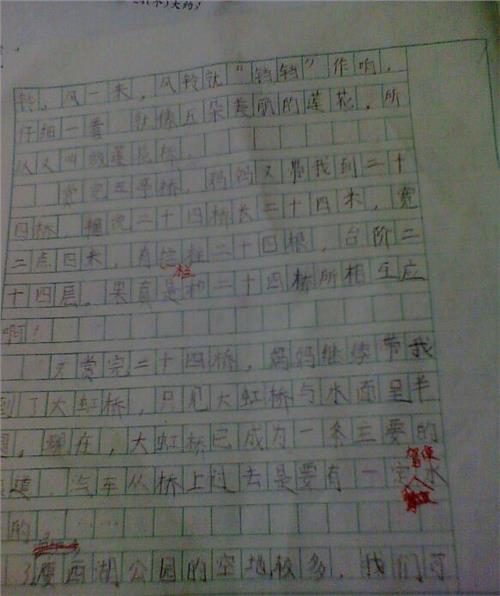 铃。风一来，风铃就“铛铛”作响，
仔细一看，就像五朵美丽的莲花，所
以又叫做莲花桥。
赏完五亭桥，妈妈又带我到二十
四桥，据说二十四桥长二十四米，宽
二点四米，有拦柱二十四根，台阶二
栏
十四层。果真是和二十四桥所相互应
啊！
又赏完二十四桥，妈妈继续带我
到了大虹桥，只见大虹桥与水面呈半
圆，现在，大虹桥已成为一条主要的
道，汽车从桥上过去是要有一定水
驾驶
的
瘦西湖公园的空地较多，我们可